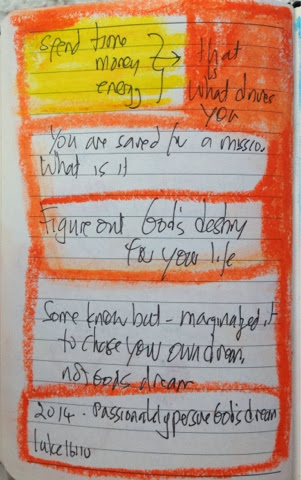 spend time
money
energy
that
is
what drives
you
You are saved for a mission
What is it
Figure out God's destiny
for your life
Some know but - marginalized it
to chase your own dream,
not God's dream
2014 - Passionately persue God's dream
luke 16:10